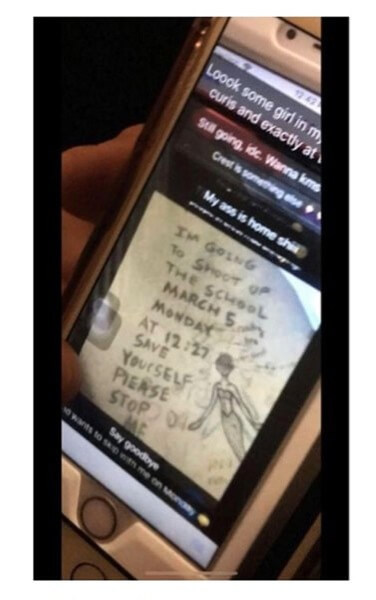 12:42
Loook some girl in my
curls and exactly at
Still going, idc. Wanna kms
Crest is something else
My ass is home shiii
IM GOING
TO SHOOT UP
THE SCHOOL
MARCH 5
MONDAY
AT 12:27
SAVE
YOURSELF
PLEASE
STOP
ME
Say goodbye
wants to skip with me on Monday